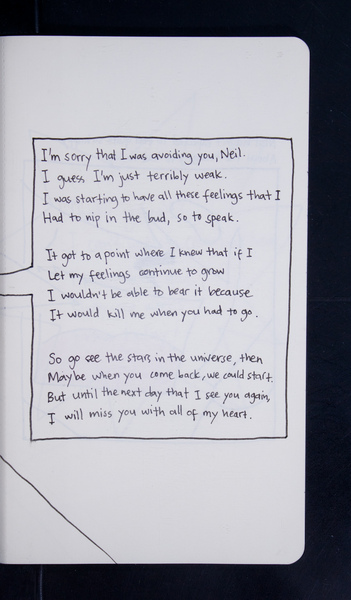 I'm sorry that I was avoiding you, Neil.
I guess I'm just terribly weak.
I was starting to have all these feelings that I
Had to nip in the bud, so to speak.
It got to a point where I knew that if I
Let my feelings continue to grow
I wouldn't be able to bear it because
It would kill me when you had to go.
So go see the stars in the universe, then
Maybe when you come back, we could start.
But until the next day that I see you again,
I will miss you with all of my heart.